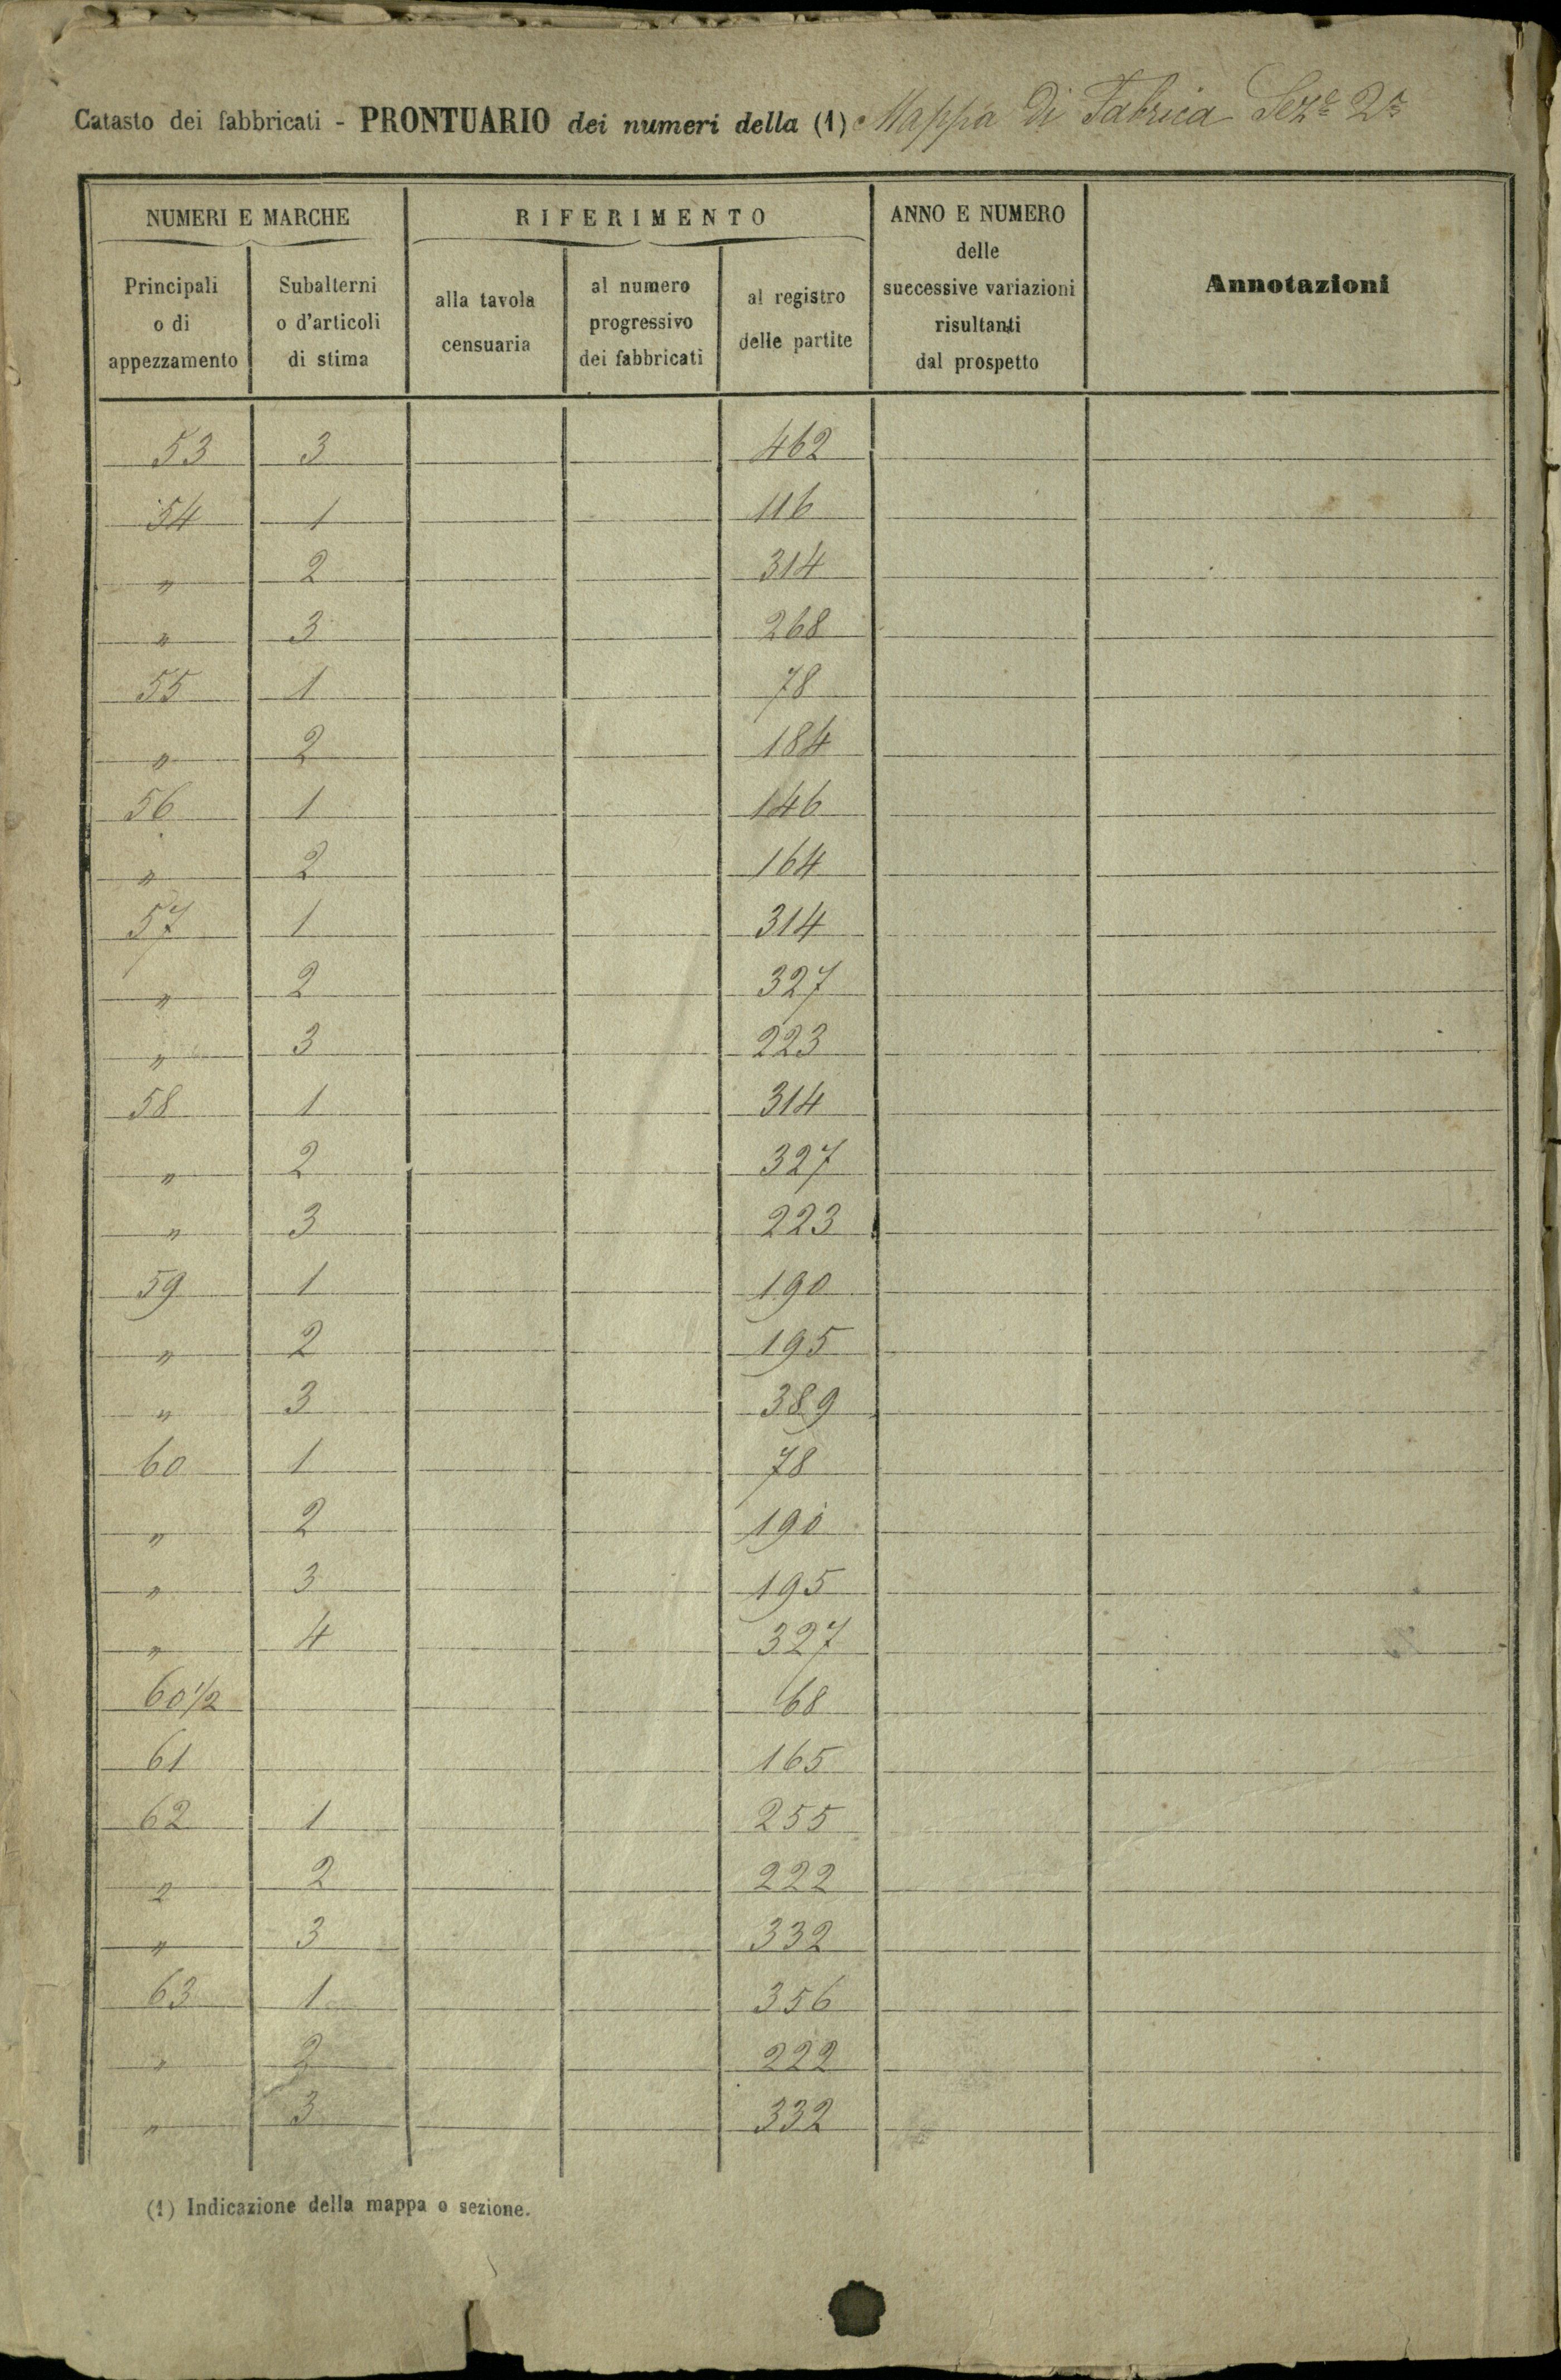 Catasto dei fabbricati - PRONTUARIO dei numeri della (1) Mappa di Fabrica Sez.e 2a
NUMERI E MARCHE
RIFERIMENTO
ANNO E NUMERO
delle
successive variazioni
risultanti
dal prospetto
Annotazioni
Principali
o di
appezzamento
Subalterni
o d'articoli
di stima
alla tavola
censuaria
al numero
progressivo
dei fabbricati
al registro
delle partite
53 3 462
54 1 116
" 2 314
" 3 268
55 1 78
" 2 184
56 1 146
" 2 164
57 1 314
" 2 327
" 3 223
58 1 314
" 2 327
" 3 223
59 1 190
" 2 195
" 3 389
60 1 78
" 2 190
" 3 195
" 4 327
60 1/2 68
61 165
62 1 255
" 2 222
" 3 332
63 1 356
" 2 222
" 3 332
(1) Indicazione della mappa o sezione.